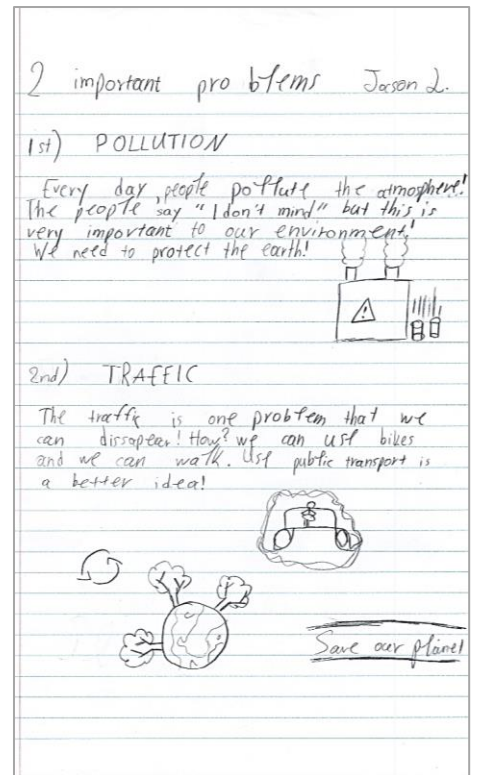 2 important problems Jason L.
1st) POLLUTION
Every day, people pollute the atmosphere!
The people say "I don't mind" but this is
very important to our environment!
We need to protect the earth!
2nd) TRAFFIC
The traffic is one problem that we
can dissapear! How? we can use bikes
and we can walk. Use public transport is
a better idea!
Save our planet